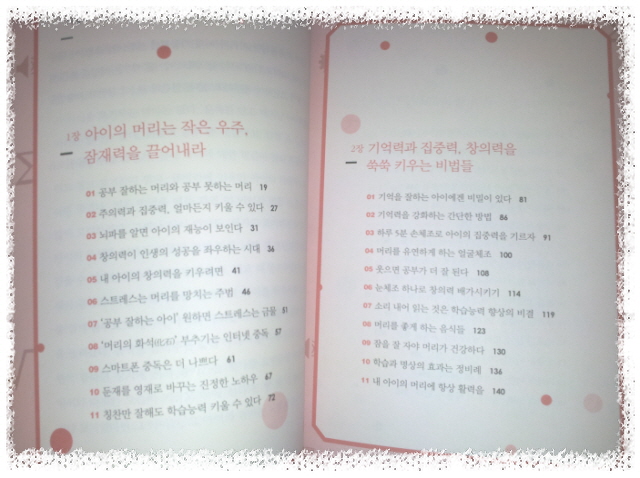 1장 아이의 머리는 작은 우주,
잠재력을 끌어내라
01 공부 잘하는 머리와 공부 못하는 머리 19
02 주의력과 집중력, 얼마든지 키울 수 있다 27
03 뇌파를 알면 아이의 재능이 보인다 31
04 창의력이 인생의 성공을 좌우하는 시대 36
05 내 아이의 창의력을 키우려면 41
06 스트레스는 머리를 망치는 주범 46
07 '공부 잘하는 아이' 원하면 스트레스는 금물 51
08 '머리의 화석化石' 부추기는 인터넷 중독 57
09 스마트폰 중독은 더 나쁘다 61
10 둔재를 영재로 바꾸는 진정한 노하우 67
11 칭찬만 잘해도 학습능력 키울 수 있다 72
2장 기억력과 집중력, 창의력을
쑥쑥 키우는 비법들
01 기억을 잘하는 아이에겐 비밀이 있다 81
02 기억력을 강화하는 간단한 방법 86
03 하루 5분 손체조로 아이의 집중력을 기르자 91
04 머리를 유연하게 하는 얼굴체조 100
05 웃으면 공부가 더 잘 된다 108
06 눈체조 하나로 창의력 배가시키기 114
07 소리 내어 읽는 것은 학습능력 향상의 비결 119
08 머리를 좋게 하는 음식들 123
09 잠을 잘 자야 머리가 건강하다 130
10 학습과 명상의 효과는 정비례 136
11 내 아이의 머리에 항상 활력을 140